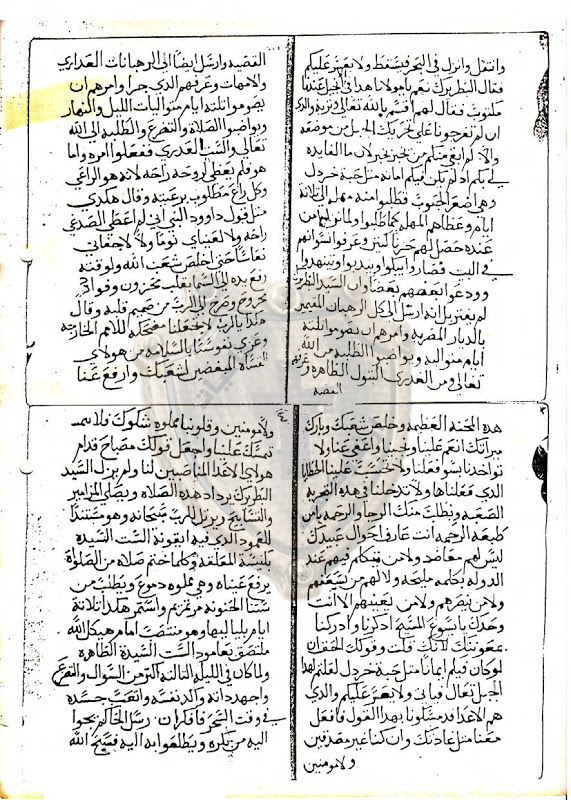 وانتقل وانزل في البحر فيسقط ولا يعسر عليكم
فقال البطريرك نعم يا مولانا هدا في انجيلنا
مكتوب فقال لهم اقسم بالله تعالى وتربة والدي
ان لم تفرجونا على تحريك الجبل من موضعه
والا لم ابقي منكم من يخبر بخبر لان ما الفايده
في بلم اد لم يكن فيكم امانه متل حبة خردل
وهي اضعف الحبوب فطلبوا منه مهله الى تلاتة
ايام وعطاهم المهله كما طلبوا ولما نزلوا من
عنده حصل لهم حزنا كبير
في البيت فصاروا يبكوا ويندبوا ويتنهدوا
وودعوا بعضهم بعضا وان السيد البطريرك
لم يفتر بل انه ارسل الى كل الرهبان المقيمين
بالديار المصريه وامرهم ان يصوموا تلتة
ايام متواليه ويواضبوا الطلبه من الله
تعالى ومن العدرى البتول الطاهره وعرفهم
القضيه وارسل ايضا الى الرهبانات العداري
والامهات وعرفهم الدي جرا وامرهم ان
يصوموا تلتة ايام متواليات الليل والنهار
ويواضبوا الصلاة والتضرع والطلبه الى الله
تعالى والست العدرى ففعلوا امره واما
هو فلم يعطي لروحه راحه لانه هو الراعي
وكل راع مطلوب برعيته وقال هكدى
متل قول داوود النبي اني لم اعطي الصدغي
راحه ولا لعيناي نوما ولا لاجفاني
نعاسا حتى اخلص شعب الله ولوقته
رفع يده الى السما بقلب محزون وفواد
مجروح وصرخ الى الرب من صميم قلبه وقال
هكدا يا رب لا تجعلنا مضحكه للامم الخارجه
وعزي نفوسنا بالسلامه من هولاي
القساه المبغضين لشعبك وارفع عنا
هده المحنه العظيمه وخلص شعبك وبارك
ميراتك انعم علينا ونجينا واعفي عنا ولا
تواخدنا بسو فعلنا ولا تحسب علينا الخطايا
الدي فعلناها ولا تدخلنا في هده التجربه
الصعبه ونطلب منك الرجا والرحمه يا من
طبعه الرحمه انت عارف احوال عبيدك
ليس لهم معاضد ولا من يتكلم فيهم عند
الدوله بكلمه مليحه ولا لهم من يسعفهم
ولا من ينصرهم ولا من يعينهم الا انت
وحدك يا يسوع المسيح ادكرنا وادركنا
بمعونتك لانك قلت وقولك الحق ان
لو كان فيكم ايمانا متل حبة خردل لقلتم لهدا
الجبل تعال فياتي ولا يعسر عليكم والدي
هم الاعدا قد مسكونا بهدا القول فافعل
معنا متل عادتك وان كنا غير مصدقين
ولا مومنين
ولا مومنين وقلوبنا مملوه شكوك فلا تمسك
علينا واجعل قولك مصباح قدام
هولاي الاعدا المناصبين لنا ولم يزل السيد
البطريرك يردد هده الصلاه ويصلي المزامير
والتسابيح ويرتل للرب سبحانه وهو مستندا
للعمود الدي فيه ايقونة الست السيده
بكنيسة المعلقه وكلما ختم صلاه من الصلوة
يرفع عيناه وهي مملوه دموع ويطلب من
ستنا الحنونه مرتمريم واستمر هكدا تلاتة
ايام بلياليها وهو منتصب امام هيكل الله
ملتصق بعامود الست السيدة الطاهره
ولما كان في الليله التالته اكتر من السوال والتضرع
واجهد داته واتعب جسده
في وقت السحر فافكر ان رسل الحاكم يجوا
اليه من باكره ويطلعوا به اليه فسبح الله